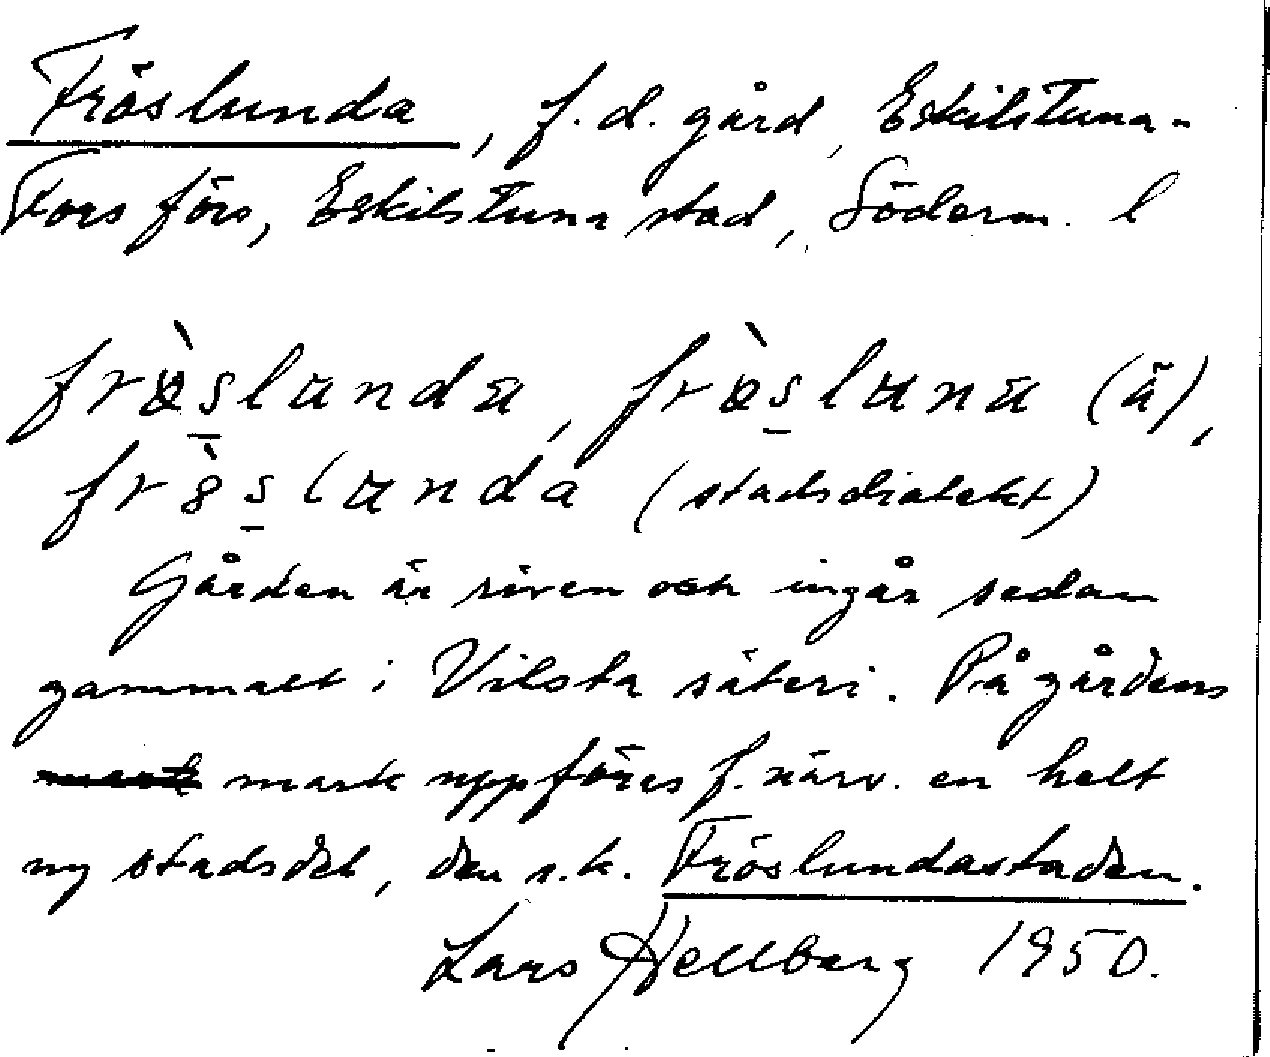 Fröslunda, f.d. gård, Eskilstuna-
Fors förs, Eskilstuna stad, Söderm. l
frö̀slanda, frö̀slana (ä),
frö̀slanda (stadsdialekt)
Gården är riven och ingår sedan
gammalt i Vilsta säteri. På gårdens
mark uppföres f. närv. en helt
ny stadsdel, den s.k. Fröslundastaden.
Lars Hellberg 1950.